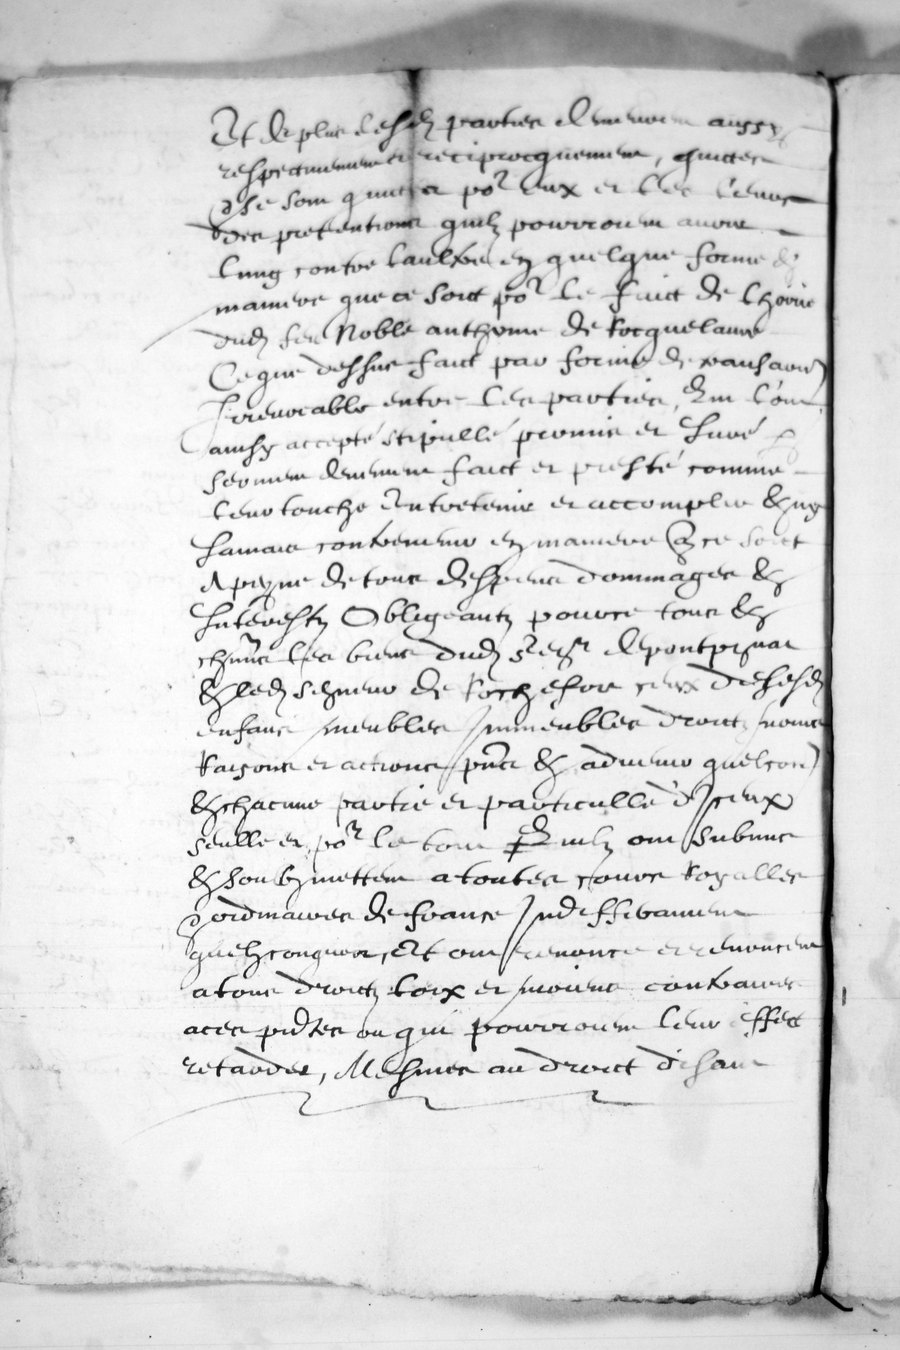 Et de plus lesd parties demeurent aussy
respectivement et reciprocquement, quittes
& se sont quitter por eux et les leurs
des pretentions quilz pourroient avoir
lung contre laultre en quelque forme &
maniere que ce soict por le faict de lhoirie
dud feu Noble anthoine de Rocquelaure
Ce que dessus faict par forme de transaction
Irrevocable entre les parties, Qui l'ont
ainsy accepté stipullé promis et Juré
serment faict et presté comme
leur touche Entretenir et accomplir & ny
Jamais contrevenir en maniere que ce soict
A peyne de tous despens dommages &
Interestz Obligeantz pource tous &
chūns les biens dud sr de pontpynat
& led seigneur de Rochefort ceux desesd
enfans meubles Immeubles droictz noms
Raisons et actions pnts & advenir quelcon
& chacune partie et particulle d'Iceux
seulle et por le tout Quilz ont submis
& soubzmettent a toutes cours Royalles
& ordinaires de france Indifferament
quelzconques, Et ont renoncé et renoncent
a tous droictz loix et moiens contraires
aces pntes ou qui pourroient leur effect
retarder, Mesmes au droict disant